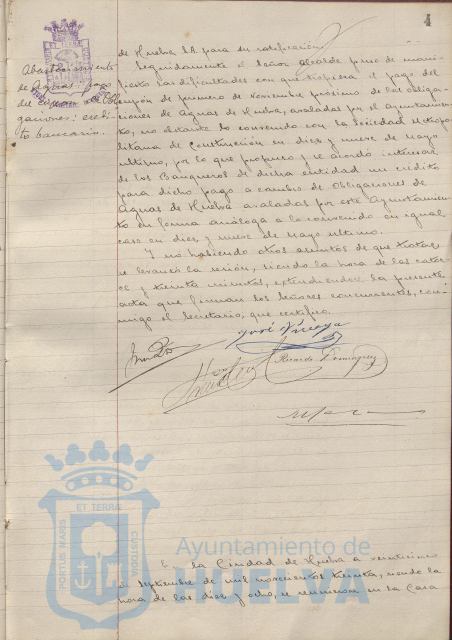 4
de Huelva S.A. para su ratificación.
Seguidamente el Señor Alcalde puso de mani-
fiesto las dificultades con que tropieza el pago del
cupón de primero de Noviembre próximo de las obliga-
ciones de Aguas de Huelva, avaladas por el Ayuntamien-
to, no obstante lo convenido con la Sociedad Metropo-
litana de Construcción en diez y nueve de Mayo
último, por lo que propuso y se acordó interesar
de los Banqueros de dicha entidad un crédito
para dicho pago a cambio de Obligaciones de
Aguas de Huelva avaladas por este Ayuntamien-
to en forma análoga a lo convenido en igual
caso en diez y nueve de Mayo último.
Y no habiendo otros asuntos de que tratar
se levantó la sesión, siendo la hora de las cator-
ce y treinta minutos, extendiéndose la presente
acta que firman los Señores concurrentes, con-
migo el Secretario, que certifico.
Abastecimiento
de Aguas: pago
del cupón de obli-
gaciones: crédi-
to bancario.
Ricardo Domínguez
ET TERRA
PORTUS MARIS
CUSTODIA
Ayuntamiento de
HUELVA
la Ciudad de Huelva a veinticinco
de Septiembre de mil novecientos treinta, siendo la
hora de las diez y ocho, se reunieron en la Casa